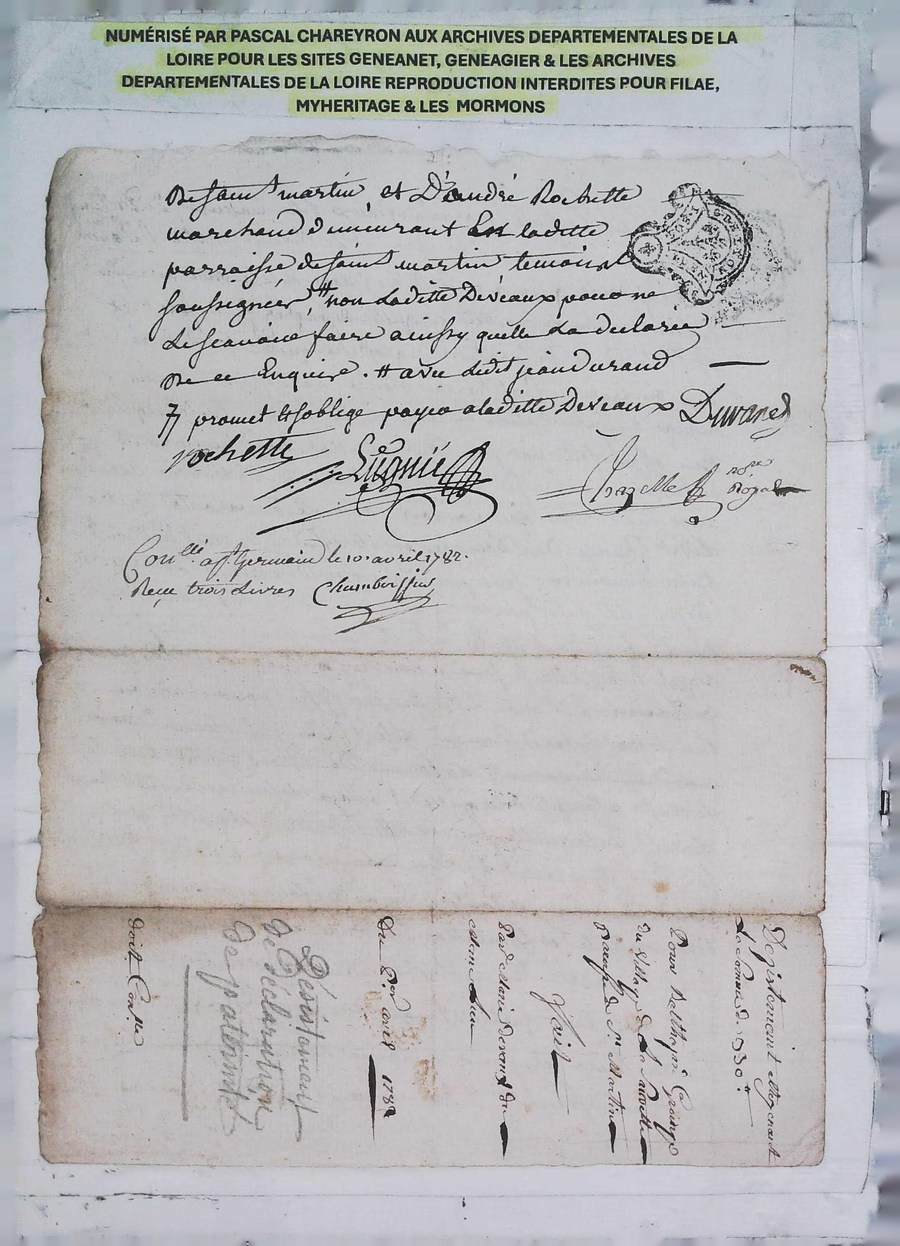 NUMÉRISÉ PAR PASCAL CHAREYRON AUX ARCHIVES DEPARTEMENTALES DE LA
LOIRE POUR LES SITES GENEANET, GENEAGIER & LES ARCHIVES
DEPARTEMENTALES DE LA LOIRE REPRODUCTION INTERDITES POUR FILAE,
MYHERITAGE & LES MORMONS
De saint martin et D'andré Rochette
marchand demeurant En laditte
parraisse de saint martin temoins
soussignés, # non laditte Deveaux pour ne
le scavoir faire ainssy quelle la declarée
De ce Enquise. # avec ledit jean durand
77 promet & soblige payer a laditte Deveaux Durand
rochette Lugnié Chazelle nore Royal
Conllé a st Germain le 10 avril 1782.
Reçu trois Livres
Desistement
la somme de 330#
Pour
du
paroisse de St Martin
fait
par Marie Devaux de
Du 2er avril 1782
Désistement
de déclaration
de paternité
doit Conlle